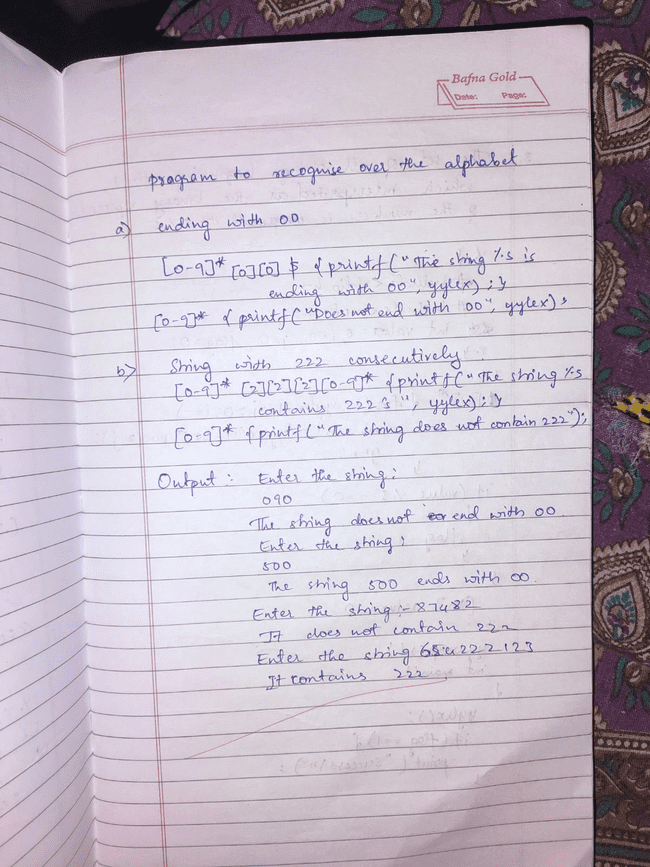 Bafna Gold
Date: Page:
program to recognise over the alphabet
a) ending with 00
[0-9]* [0][0] $ {printf("The string %s is
ending with 00", yylex);}
[0-9]* {printf("Does not end with 00", yylex);
b) String with 222 consecutively
[0-9]* [2][2][2][0-9]* {printf("The string %s
contains 222 ", yylex);}
[0-9]* {printf("The string does not contain 222");
Output : Enter the string:
090
The string does not end with 00.
Enter the string:
500
The string 500 ends with 00.
Enter the string:- 87482
It does not contain 222
Enter the string 222123
It contains 222